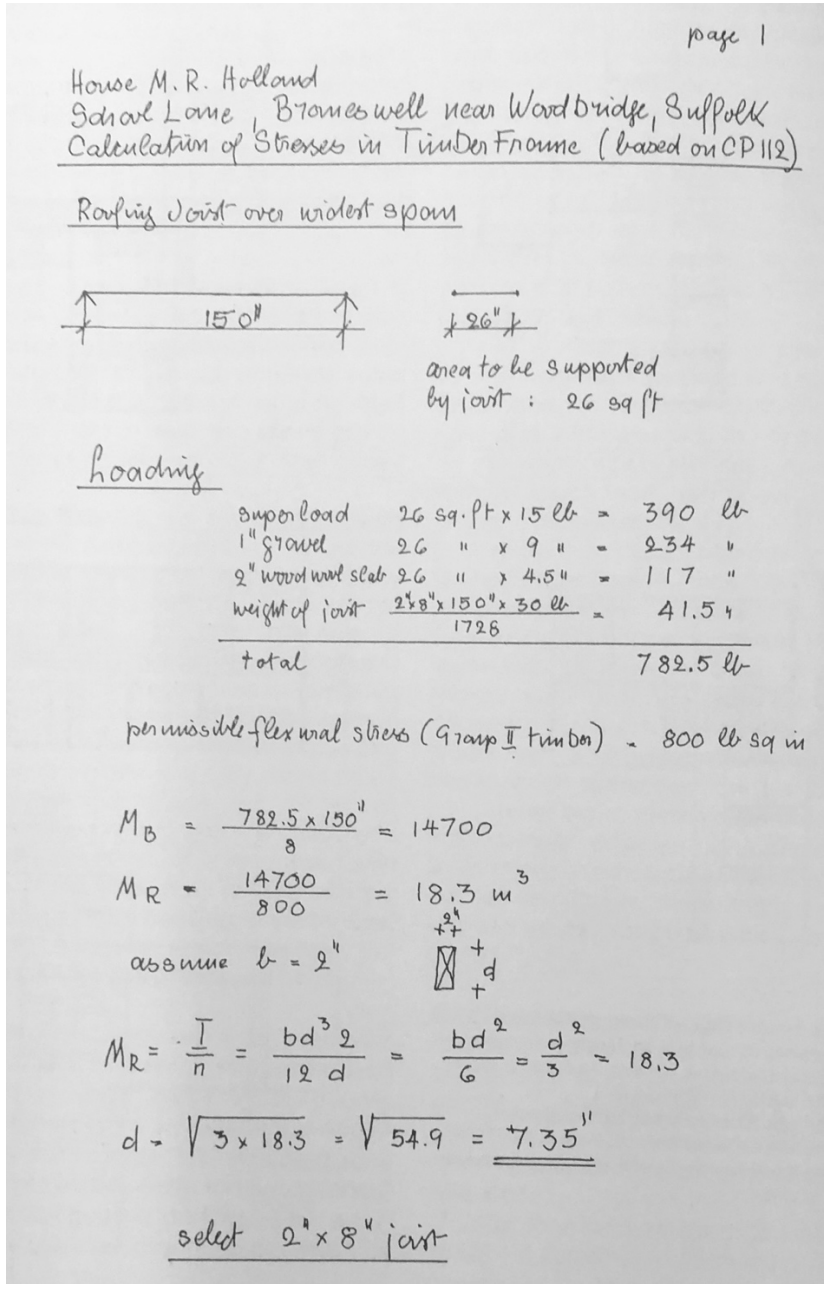 page 1
House M. R. Holland
School Lane, Bromeswell near Woodbridge, Suffolk
Calculation of Stresses in Timber Frame (based on CP 112)
Roofing Joist over widest span
150" 26"
area to be supported
by joist : 26 sq ft
Loading
superload 26 sq. ft x 15 lb = 390 lb
1" gravel 26 " x 9 " = 234 "
2" wood wool slab 26 " x 4.5 " = 117 "
weight of joist 2"x8"x150"x30 lb / 1728 = 41.5 "
total 782.5 lb
permissible flexural stress (Group II timber) = 800 lb sq in
M_B = 782.5 x 150" / 8 = 14700
M_R = 14700 / 800 = 18.3 in³
assume b = 2" 2" d
M_R = I/n = bd³ 2 / 12 d = bd² / 6 = d² / 3 = 18.3
d = √3 x 18.3 = √54.9 = 7.35"
select 2" x 8" joist